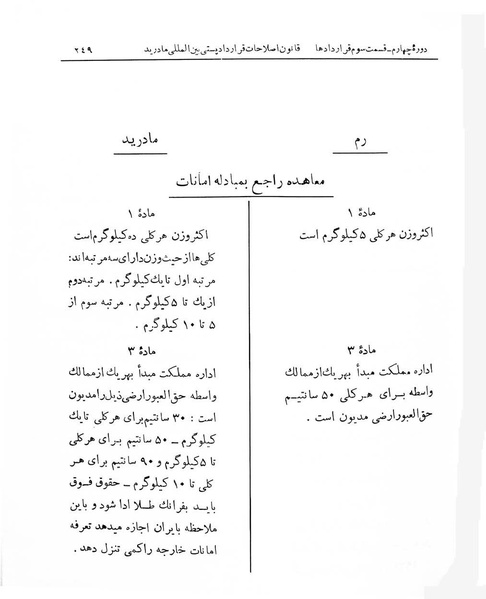 دورهٔ چهارم ـ قسمت سوم قراردادها قانون اصلاحات قرارداد پستی بین‌المللی مادرید ۲۴۹
رم
مادرید
معاهده راجع بمبادله امانات
مادهٔ ۱
اکثر وزن هر کلی ۵ کیلوگرم است
مادهٔ ۳
اداره مملکت مبدأ بهریك از ممالك
واسطه برای هر کلی ۵۰ سانتیم
حق‌العبور ارضی مدیون است .
مادهٔ ۱
اکثر وزن هر کلی ده کیلوگرم است
کلی‌ها از حیث وزن دارای سه مرتبه‌اند:
مرتبه اول تا یك کیلوگرم . مرتبه دوم
از یك تا ۵ کیلوگرم . مرتبه سوم از
۵ تا ۱۰ کیلوگرم .
مادهٔ ۳
اداره مملکت مبدأ بهریك از ممالك
واسطه حق‌العبور ارضی ذیل را مدیون
است : ۳۰ سانتیم برای هر کلی تا یك
کیلوگرم ـ ۵۰ سانتیم برای هر کلی
تا ۵ کیلوگرم و ۹۰ سانتیم برای هر
کلی تا ۱۰ کیلوگرم ـ حقوق فوق
باید بفرانك طلا ادا شود و باین
ملاحظه بایران اجازه میدهد تعرفه
امانات خارجه را کمی تنزل دهد .